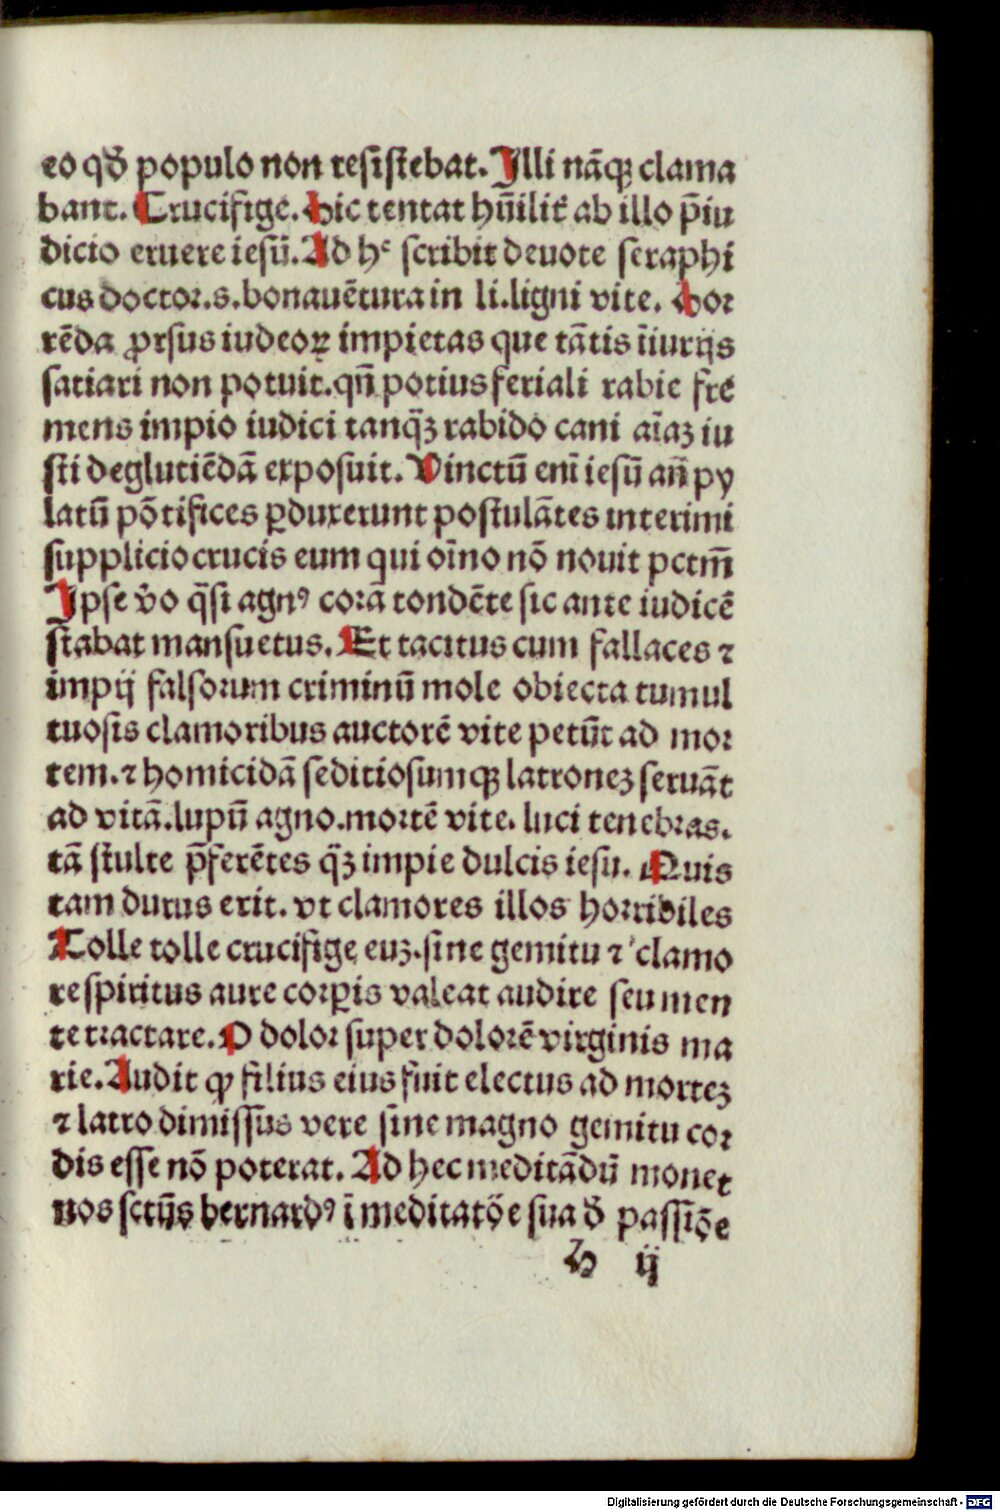 eo qḋ populo non resistebat. Illi nāqꝫ clama
bant. Crucifige. Hic tentat hūilit̄ ab illo p̄iu
dicio eruere iesū. Ad hᶜ scribit deuote seraphi
cus doctor.s.bonauētura in li.ligni vite. Hor
rēda ꝓrsus iudeoꝝ impietas que tātis īiurijs
satiari non potuit.qn̄ potius feriali rabie fre
mens impio iudici tanq̄ꝫ rabido cani aīaꝫ iu
sti deglutiēdā exposuit. Vinctū eni iesū an̄ py
latū pōtifices ꝑduxerunt postulātes interimi
supplicio crucis eum qui oīno nō nouit pctm̄
Ipse v̄o q̄si agnꝰ corā tondēte sic ante iudicē
stabat mansuetus. Et tacitus cum fallaces ⁊
impij falsorum criminū mole obiecta tumul
tuosis clamoribus auctorē vite petūt ad mor
tem.⁊ homicidā seditiosumqꝫ latroneꝫ seruāt
ad vitā.lupū agno.mortē vite. luci tenebras.
tā stulte p̄ferētes q̄ꝫ impie dulcis iesu. Quis
tam durus erit. vt clamores illos horribiles
Tolle tolle crucifige euꝫ.sine gemitu ⁊ clamo
re spiritus aure corꝑis valeat audire seu men
te tractare. O dolor super dolorē virginis ma
rie. Audit qꝙ filius eius fuit electus ad morteꝫ
⁊ latro dimissus vere sine magno gemitu cor
dis esse nō poterat. Ad hec meditādū monet
nos sctūs bernardꝰ ī meditatōe sua ḋ passiōe
h ij
Digitalisierung gefördert durch die Deutsche Forschungsgemeinschaft - DFG